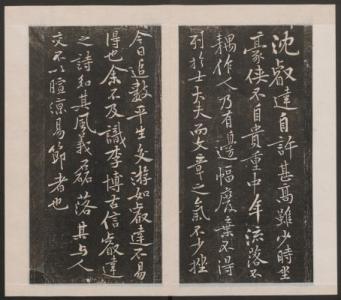 沈叡達自許甚高雖少時坐
豪俠不自貴重中年流落不
耦作人乃有邊幅廢棄不得
列於士大夫而文章之氣不少挫
今日追數平生交游如叡達不易
得也余不及識李博士信叡達
之詩知其風義磊落其與人
交不以暄涼易節者也